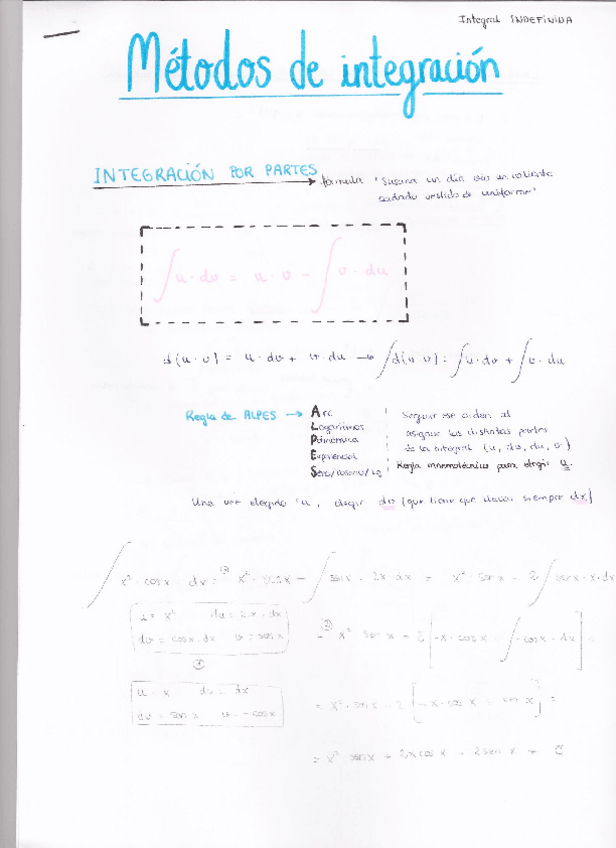 Integral INDEFINIDA
Métodos de integración
INTEGRACIÓN POR PARTES → fórmula "Susana un día vio un valiente
soldado vestido de uniforme"
∫u·dv = u·v - ∫v·du
d(u·v) = u·dv + v·du → ∫d(u·v) = ∫u·dv + ∫v·du
Regla de ALPES → Arc
Logaritmos
Polinómica
Exponencial
Seno/coseno/tg
Seguir ese orden al
asignar las distintas partes
de la integral (u, dv, du, v)
Regla mnemotécnica para elegir u.
Una vez elegido u, elegir dv (que tiene que llevar siempre dx)
∫x² · cosx dx = x² · senx - ∫senx · 2x · dx = x² · senx - 2∫senx · x · dx
u = x² du = 2x · dx
dv = cosx · dx v = senx
①
= ② x² senx - 2[-x · cosx - ∫-cosx · dx] =
u = x du = dx
dv = senx v = -cosx
= x² · senx - 2[-x · cosx + senx] =
= x² senx + 2xcosx - 2senx + C